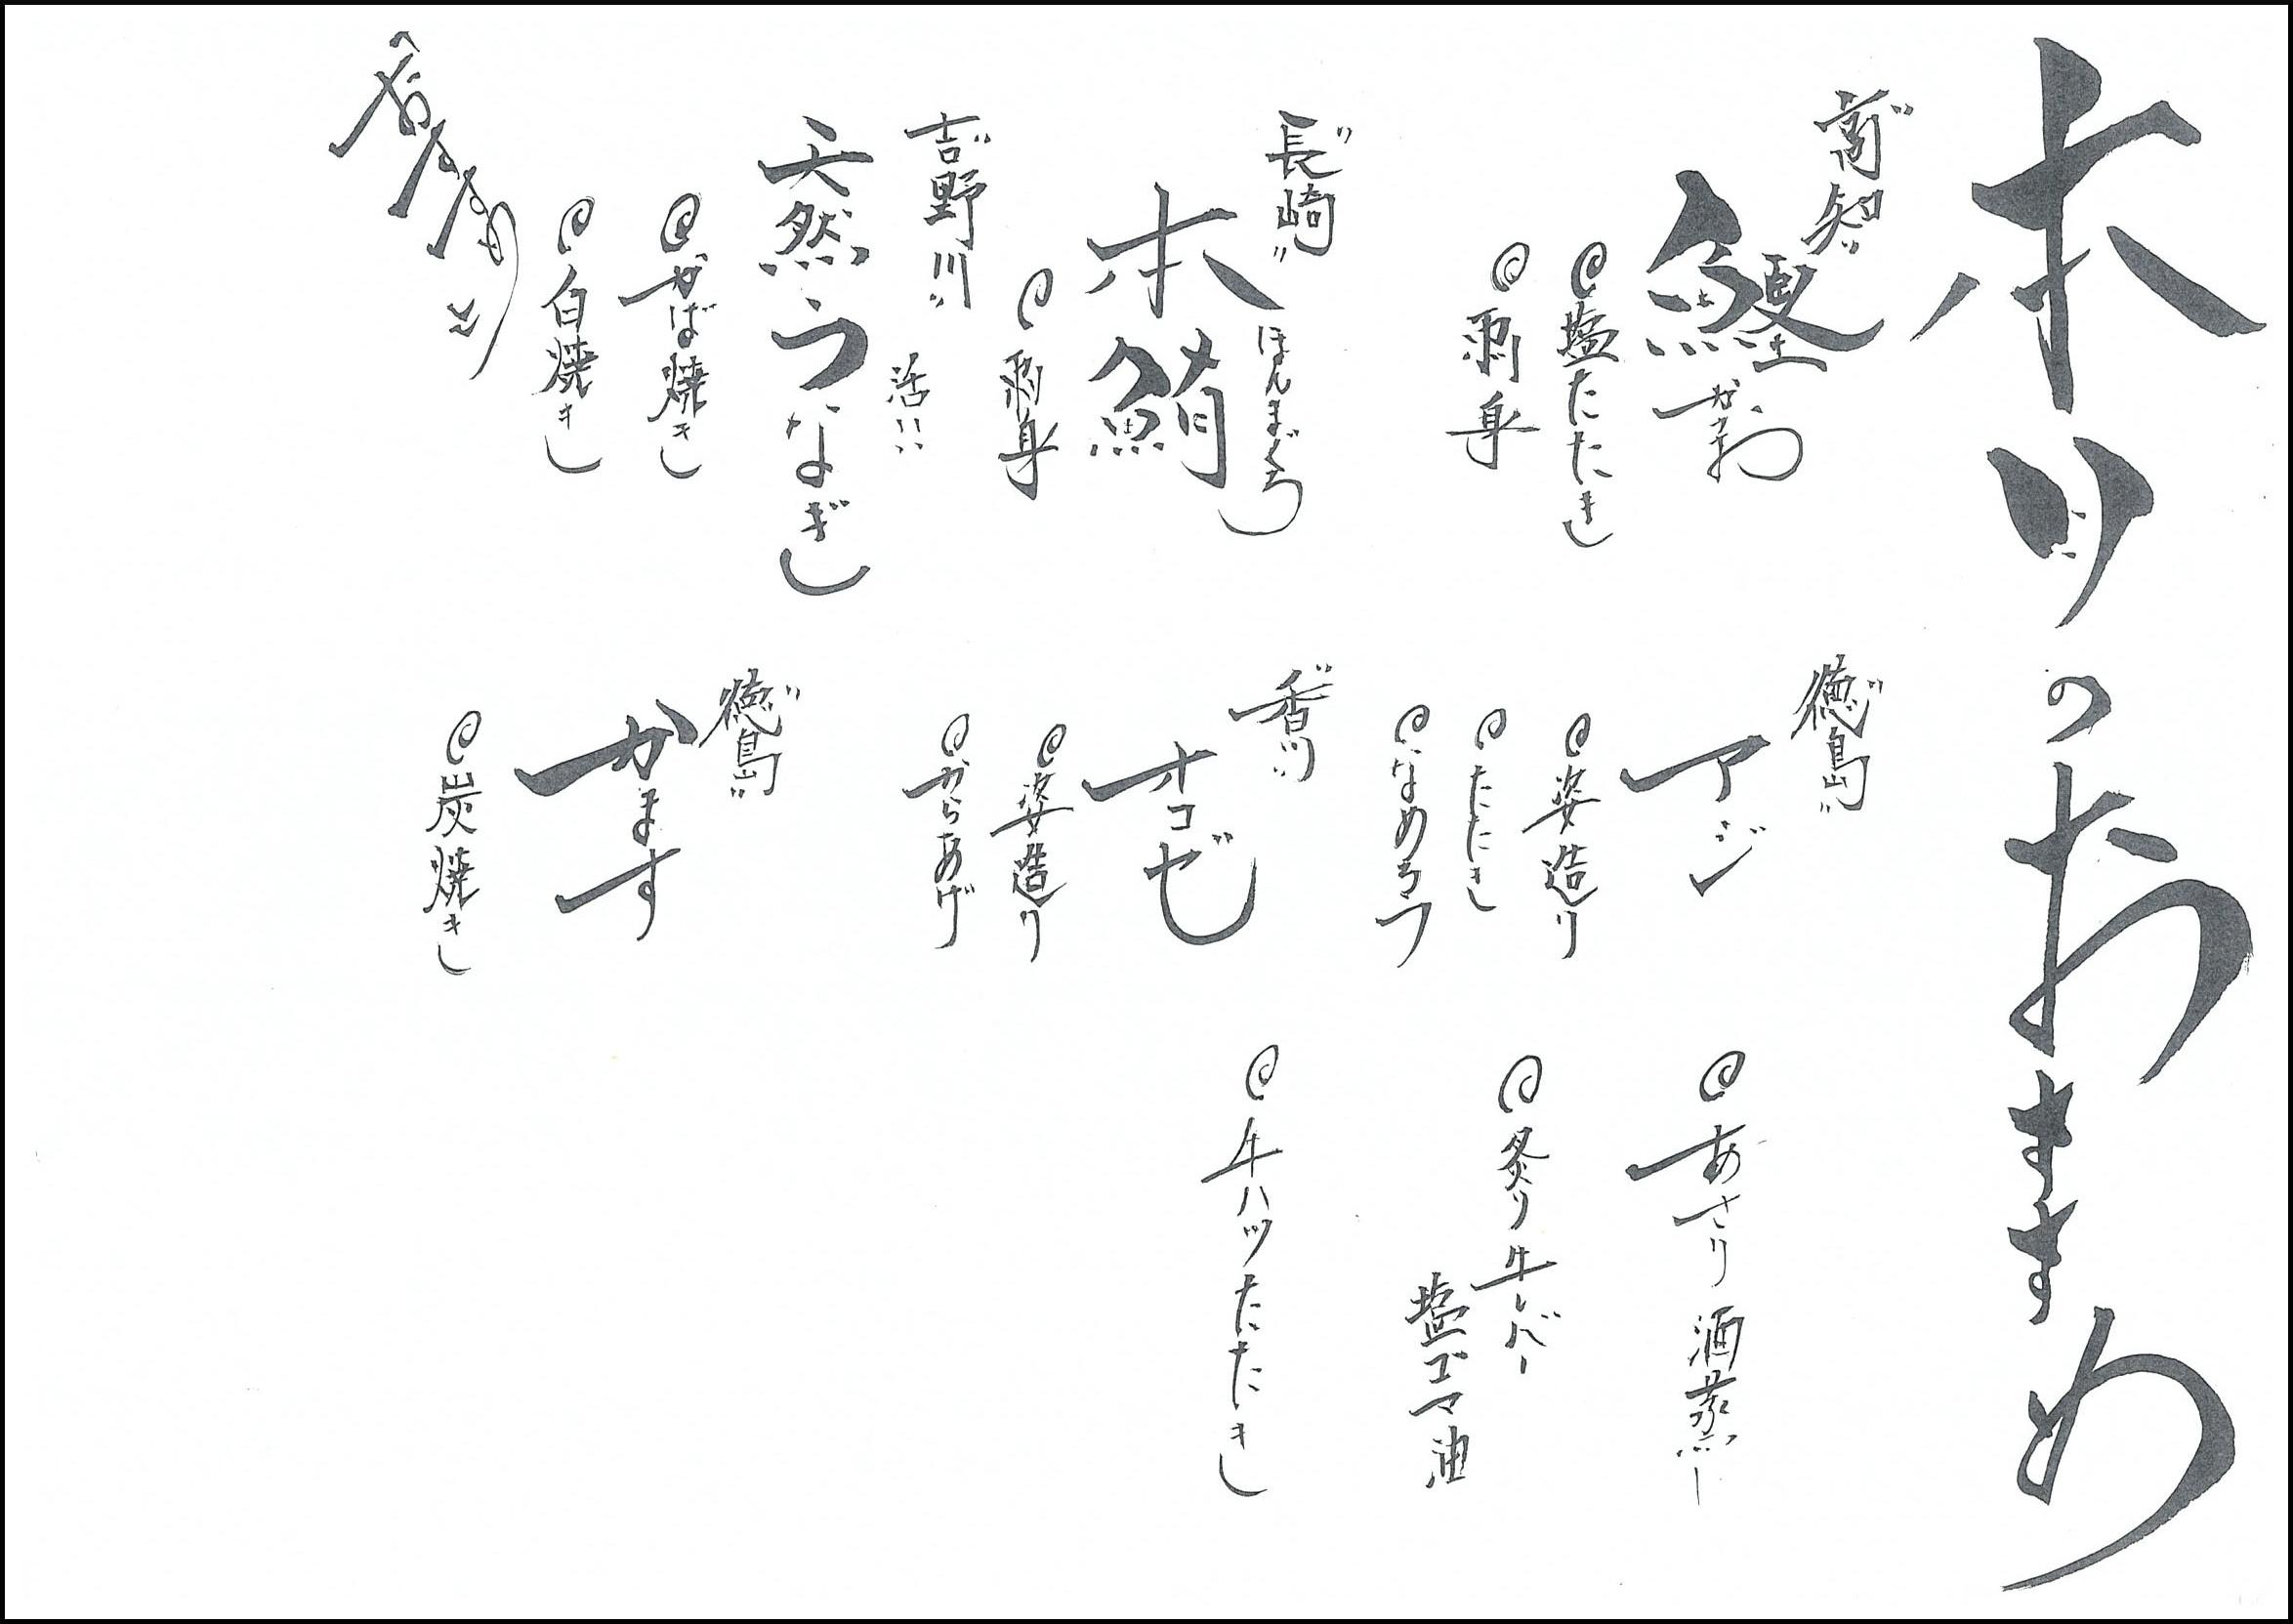 本日のおすすめ
"高知"
鰹 かつお
塩たたき
刺身
"長崎"
本鮪 ほんまぐろ
刺身
"吉野川" 活!!
天然うなぎ
かば焼き
白焼き
"徳島"
アジ
姿造り
たたき
なめろう
"香川"
オコゼ
姿造り
からあげ
"徳島"
かます
炭焼き
あさり酒蒸し
炙り牛レバー
塩ゴマ油
牛ハツたたき